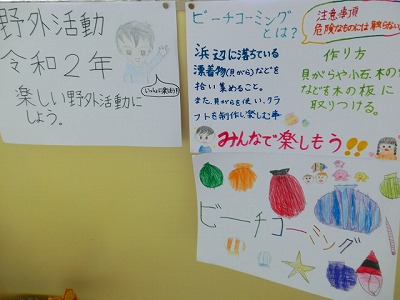 野外活動
令和2年
楽しい野外活動に
しよう。
ビーチコーミング
とは?
浜辺に落ちている
漂着物(貝がら)などを
拾い集めること。
また、貝がらを使い、クラ
フトを制作し楽しむ事
注意事項
危険なものには触らない
作り方
貝がらや小石、木の
などを木の板に
取りつける。
みんなで楽しもう!!
ビーチコーミング